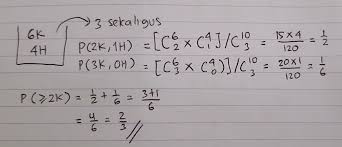 6K
4H
3 sekaligus
P(2K, 1H) = [C⁶₂ × C⁴₁] / C¹⁰₃ = 15 × 4 / 120 = 1/2
P(3K, 0H) = [C⁶₃ × C⁴₀] / C¹⁰₃ = 20 × 1 / 120 = 1/6
P(≥2K) = 1/2 + 1/6 = 3+1 / 6
= 4/6 = 2/3 //